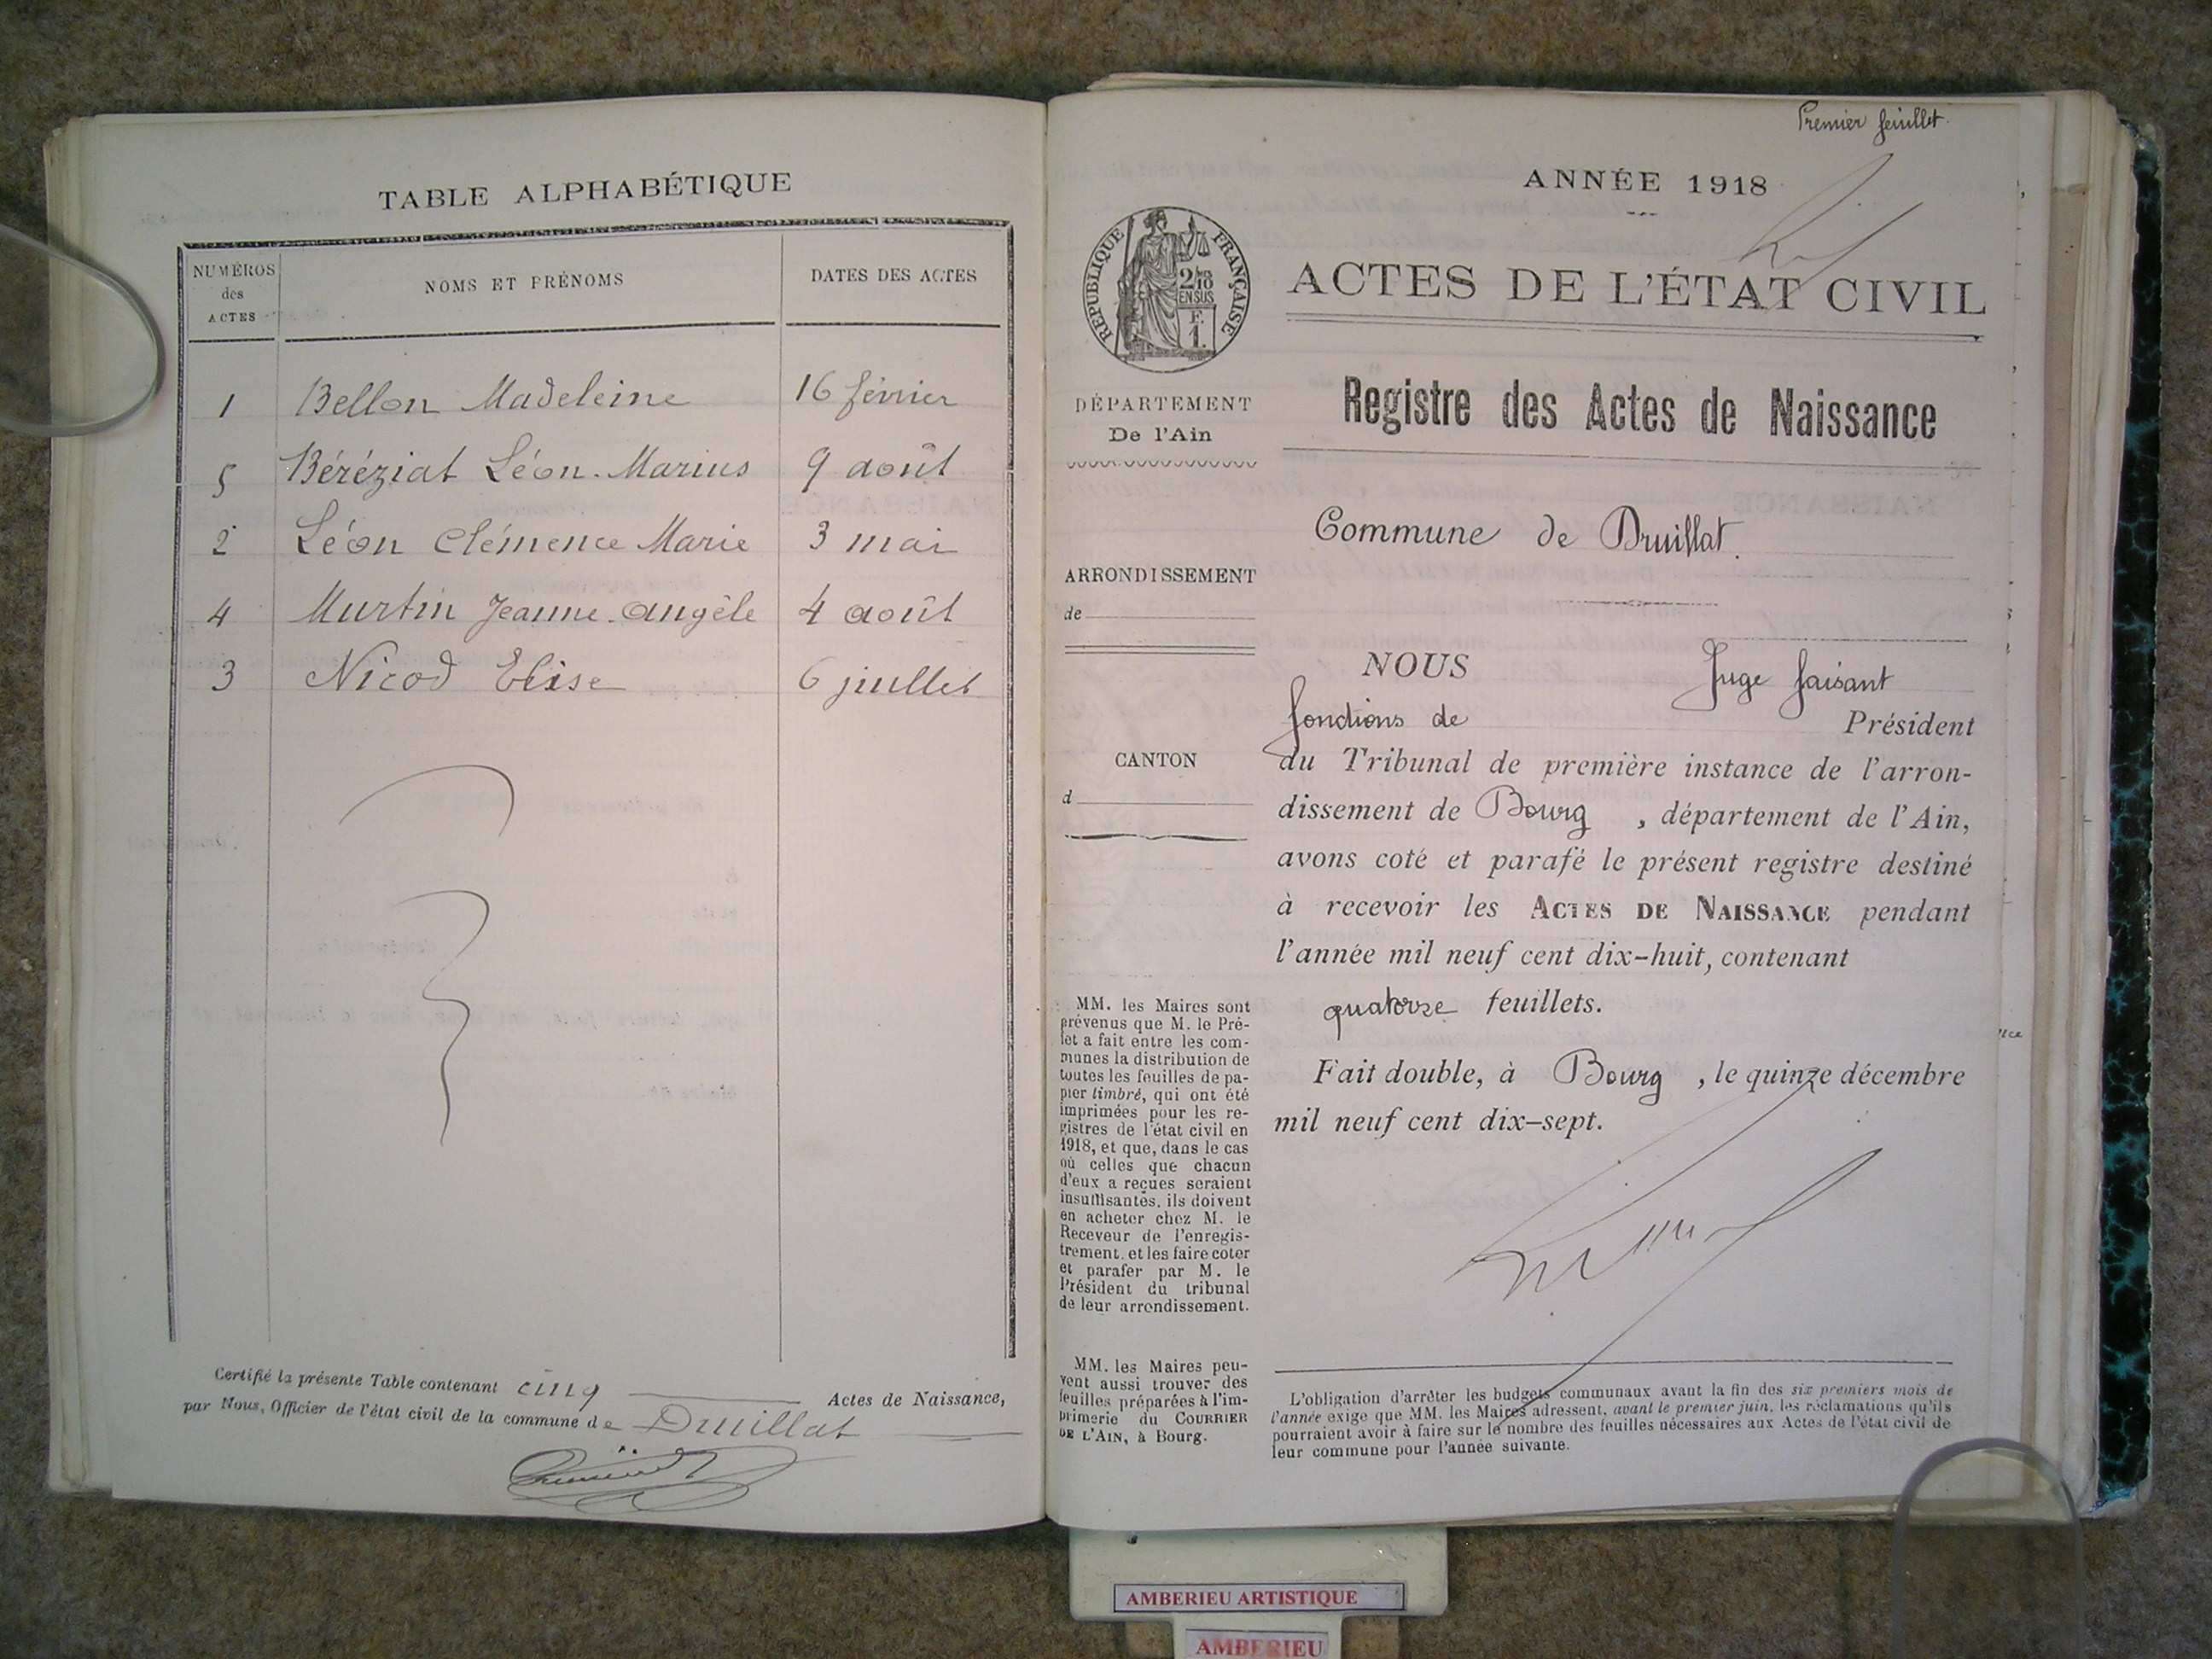 TABLE ALPHABÉTIQUE
NUMÉROS des ACTES
NOMS ET PRÉNOMS
DATES DES ACTES
1 Bellon Madeleine 16 février
5 Béréziat Léon-Marius 9 août
2 Léon Clémence Marie 3 mai
4 Murtin Jeanne-Angèle 4 août
3 Nicod Elise 6 juillet
Certifié la présente Table contenant cinq Actes de Naissance,
par Nous, Officier de l'état civil de la commune de Druillat
Premier feuillet.
ANNÉE 1918
RÉPUBLIQUE FRANÇAISE
2/10
EN SUS
F.
1.
ACTES DE L'ÉTAT CIVIL
DÉPARTEMENT
De l'Ain
ARRONDISSEMENT
de
CANTON
d
MM. les Maires sont
prévenus que M. le Pré-
fet a fait entre les com-
munes la distribution de
toutes les feuilles de pa-
pier timbré, qui ont été
imprimées pour les re-
gistres de l'état civil en
1918, et que, dans le cas
où celles que chacun
d'eux a reçues seraient
insuffisantes, ils doivent
en acheter chez M. le
Receveur de l'enregis-
trement, et les faire coter
et parafer par M. le
Président du tribunal
de leur arrondissement.
MM. les Maires peu-
vent aussi trouver des
feuilles préparées à l'im-
primerie du COURRIER
DE L'AIN, à Bourg.
Registre des Actes de Naissance
Commune de Druillat.
NOUS Juge faisant
fonctions de Président
du Tribunal de première instance de l'arron-
dissement de Bourg , département de l'Ain,
avons coté et parafé le présent registre destiné
à recevoir les ACTES DE NAISSANCE pendant
l'année mil neuf cent dix-huit, contenant
quatorze feuillets.
Fait double, à Bourg , le quinze décembre
mil neuf cent dix-sept.
L'obligation d'arrêter les budgets communaux avant la fin des six premiers mois de
l'année exige que MM. les Maires adressent, avant le premier juin, les réclamations qu'ils
pourraient avoir à faire sur le nombre des feuilles nécessaires aux Actes de l'état civil de
leur commune pour l'année suivante.
AMBERIEU ARTISTIQUE
AMBERIEU